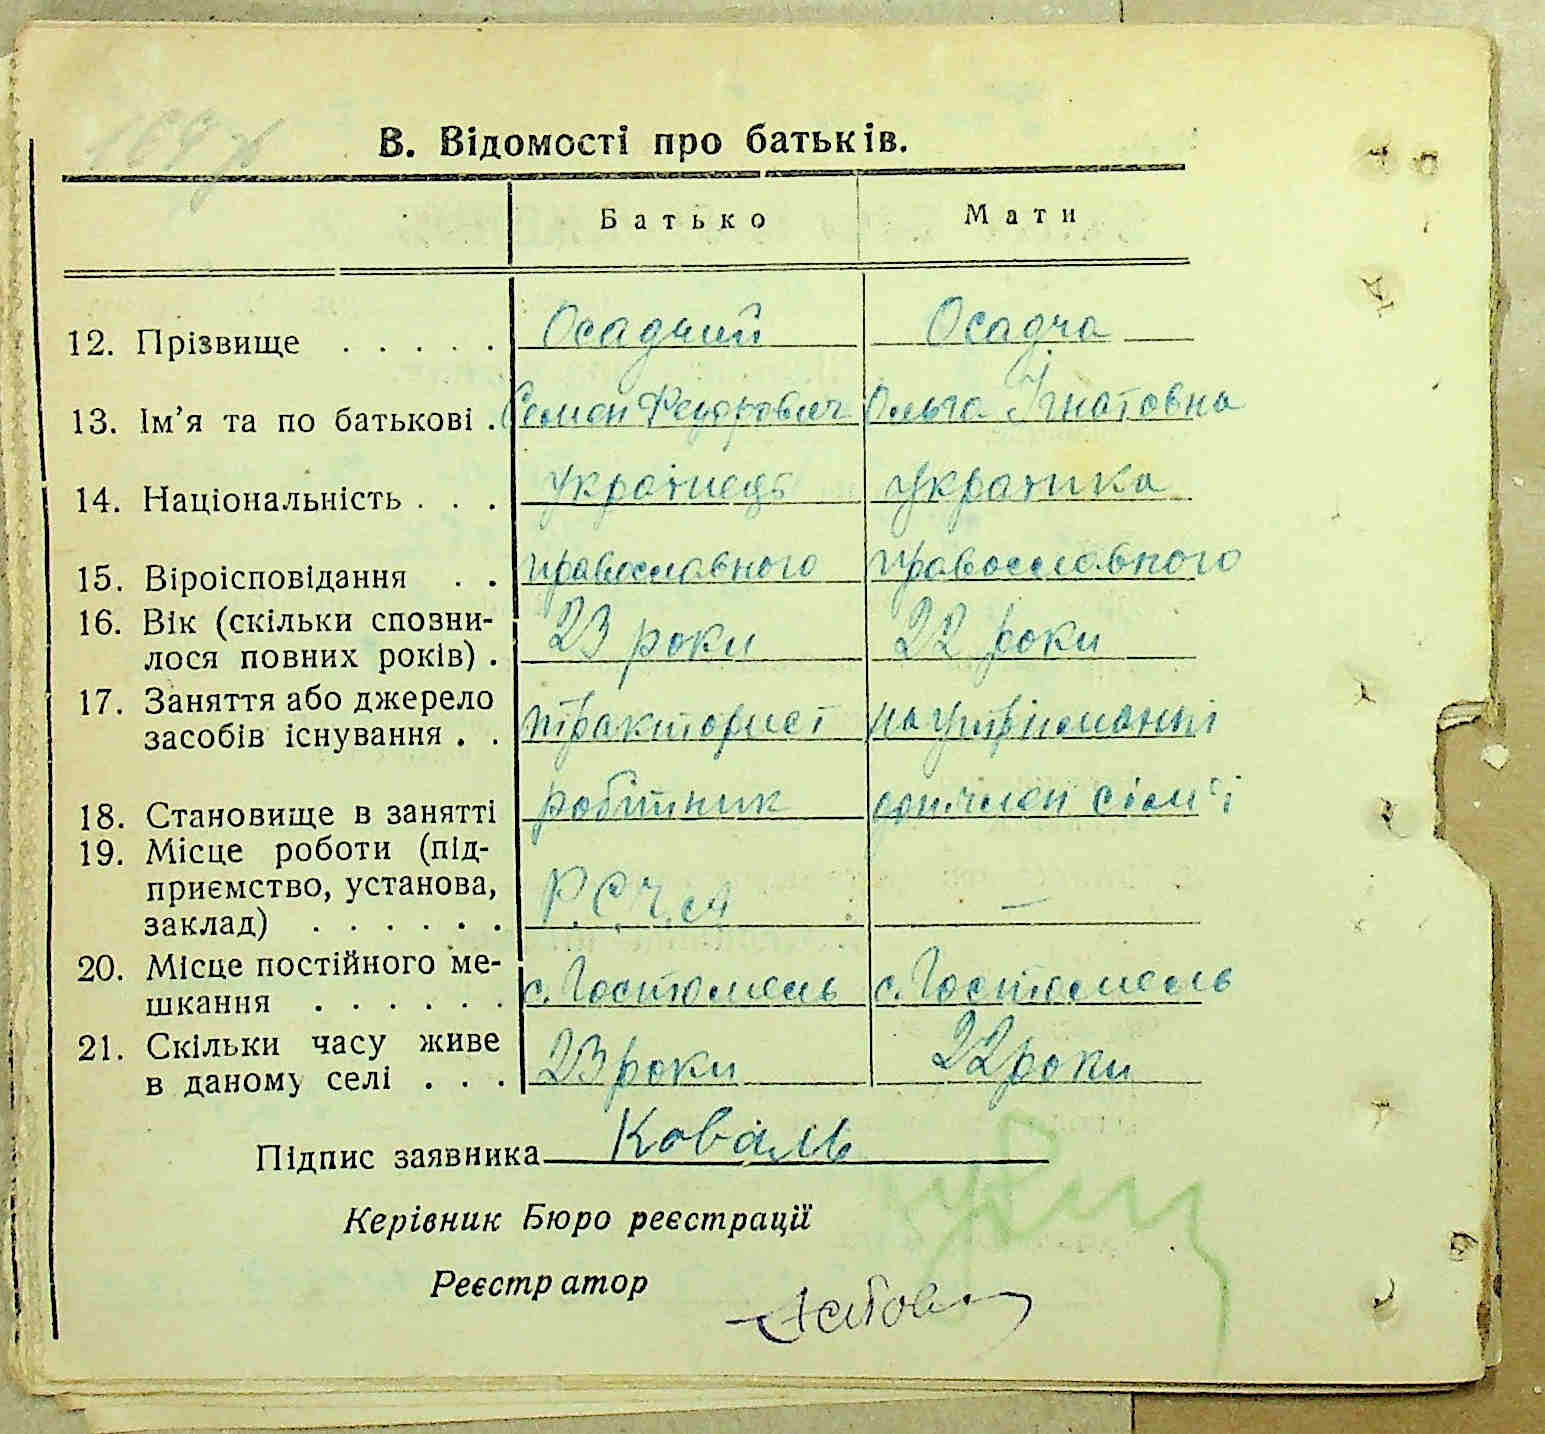 В. Відомості про батьків.
Батько Мати
12. Прізвище . . . . . Осадчий Осадча
13. Ім'я та по батькові . Семен Федорович Ольга Ігнатовна
14. Національність . . . Українець Українка
15. Віроісповідання . . православного православного
16. Вік (скільки сповни-
лося повних років) . 23 роки 22 роки
17. Заняття або джерело
засобів існування . . тракторист на утриманні
18. Становище в занятті робітник член сім'ї
19. Місце роботи (під-
приємство, установа,
заклад) . . . . . . Р.С.Ч.А —
20. Місце постійного ме-
шкання . . . . . . с. Гостомель с. Гостомель
21. Скільки часу живе
в даному селі . . . 23 роки 22 роки
Підпис заявника Коваль
Керівник Бюро реєстрації
Реєстратор